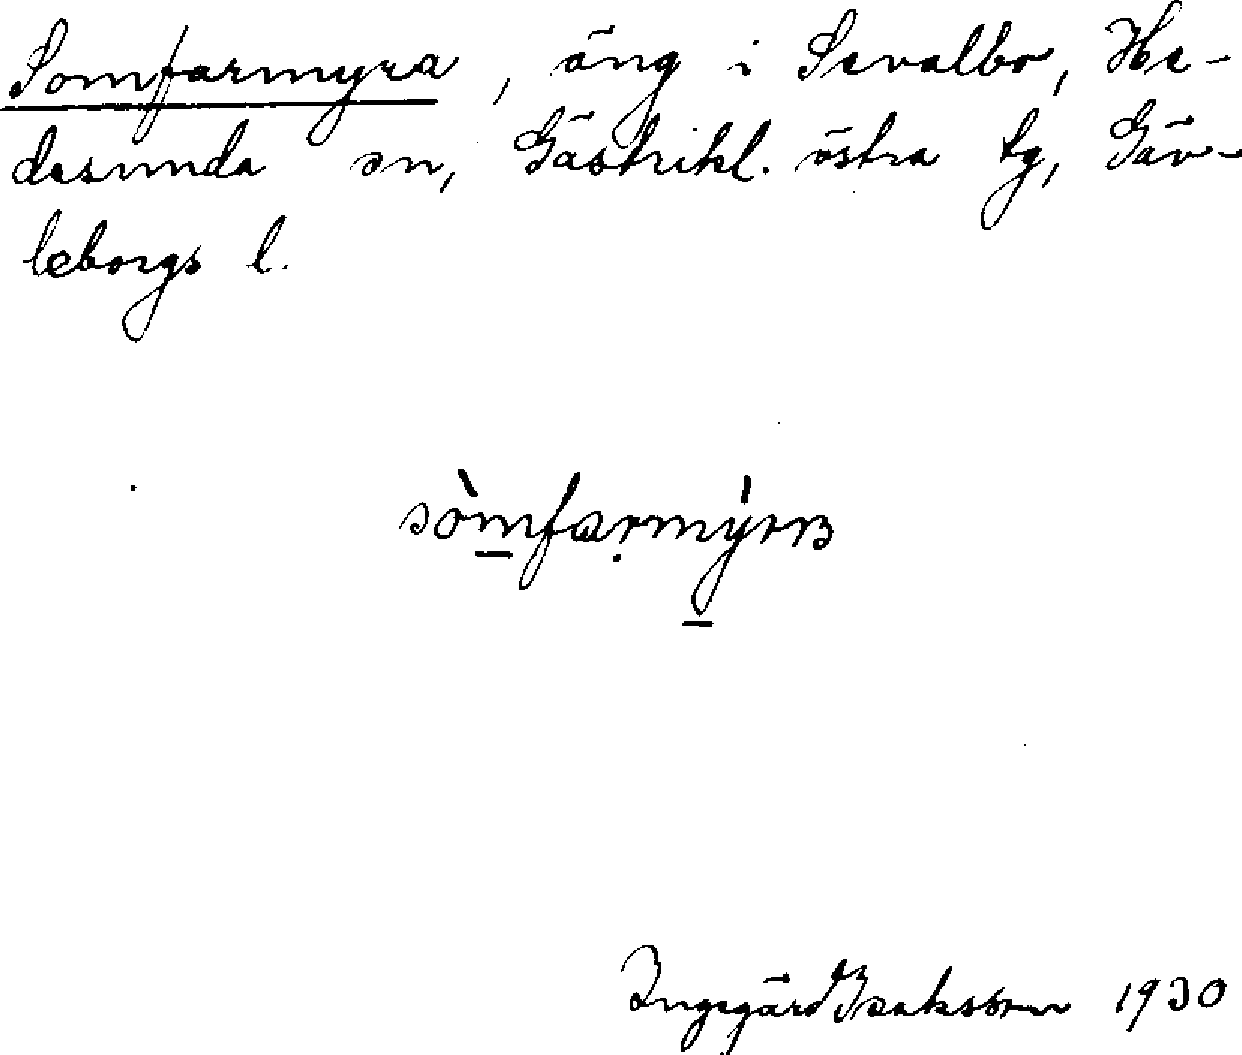 Somfarmyra, äng i Sevalbo, He-
desunda sn, Gästrikl. östra tg, Gäv-
leborgs l.
sòmfarmẏrɜ
Ingegärd Isaksson 1930